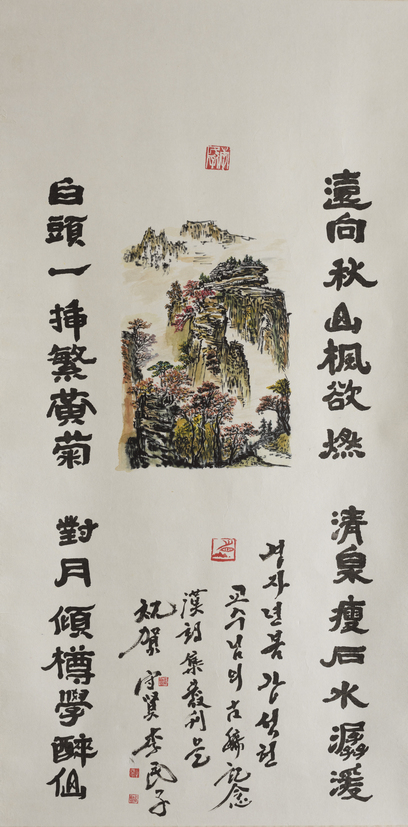 遠向秋山楓欲燃
清泉瘦石水潺湲
白頭一揷繁黃菊
對月傾樽學醉仙
경자년 봄 강
교수님의 古稀 記念
漢詩集 發刊을
祝賀 守賢 李民子